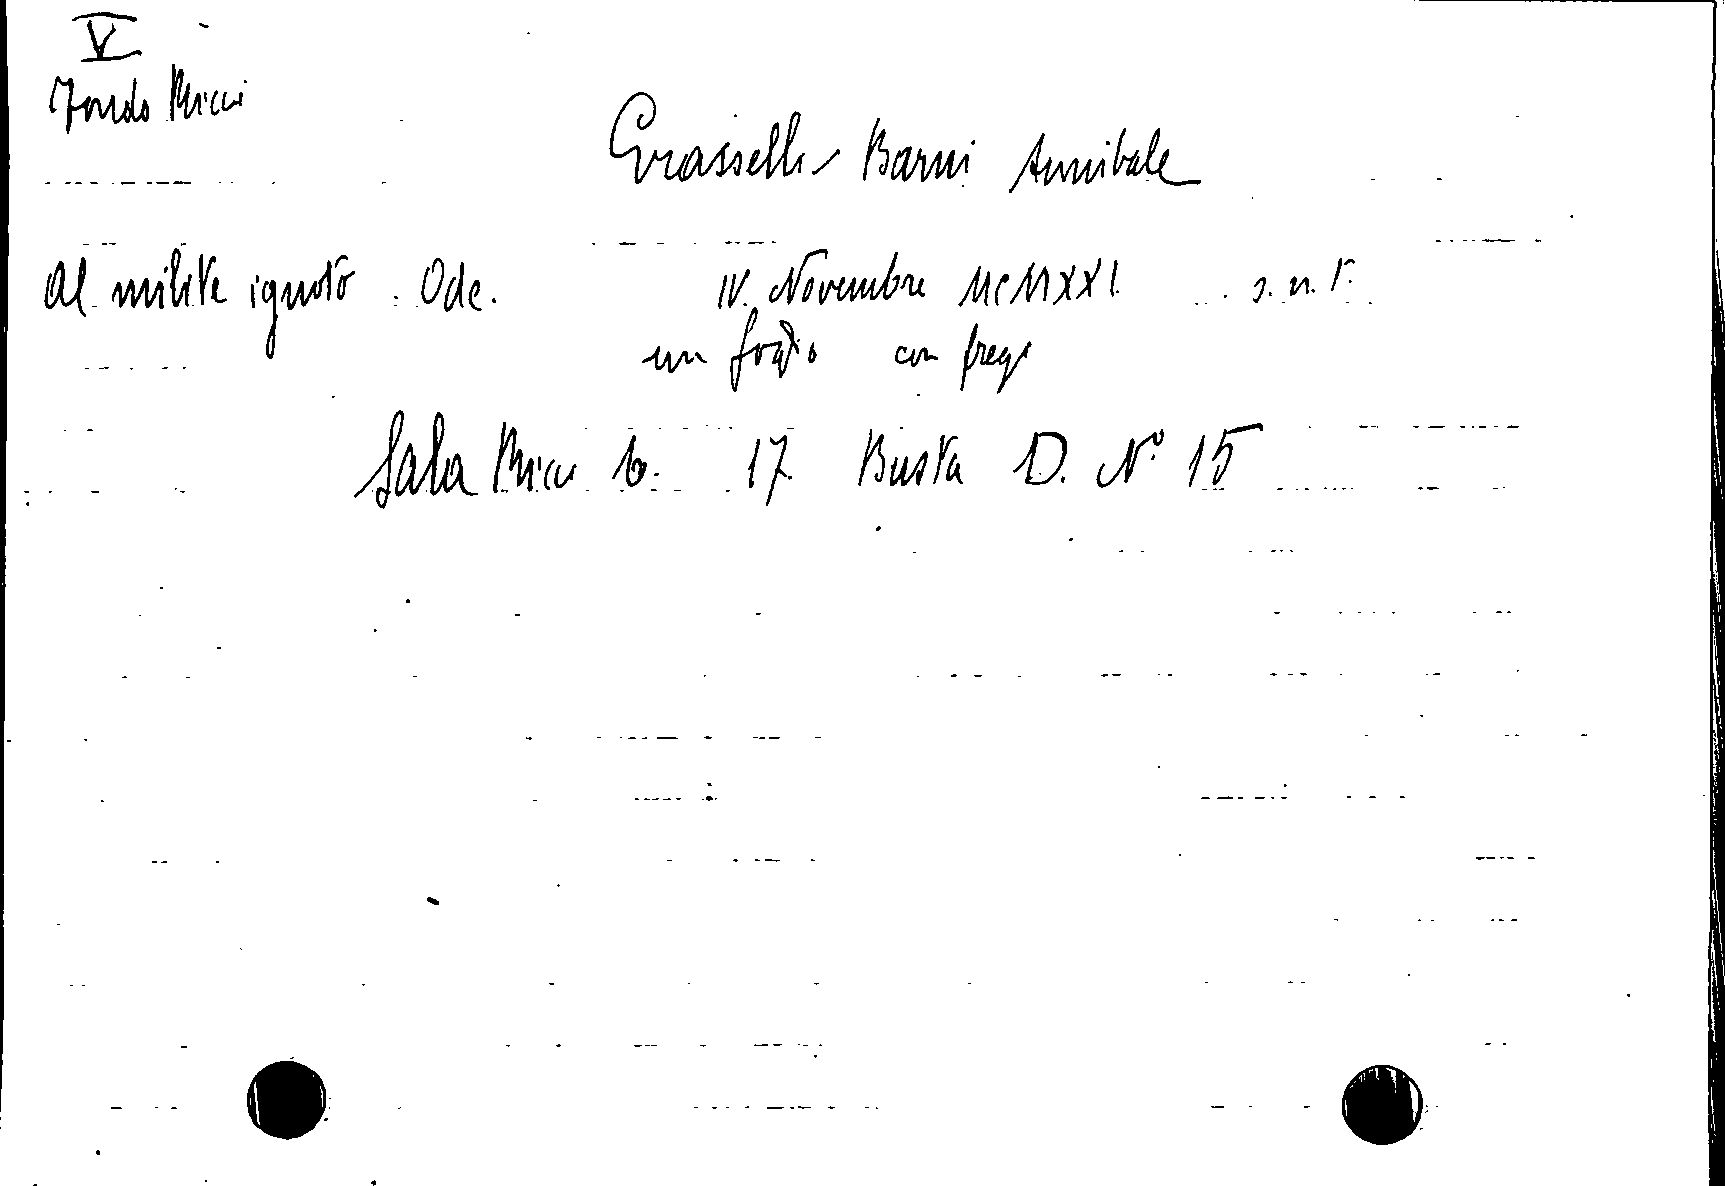 V
Fondo Ricci
Grasselli Barni Annibale
Al milite ignoto. Ode. IV. Novembre MCMXXI. s.n.t.
un foglio con fregi
Sala Ricci b. 17 Busta D. N° 15